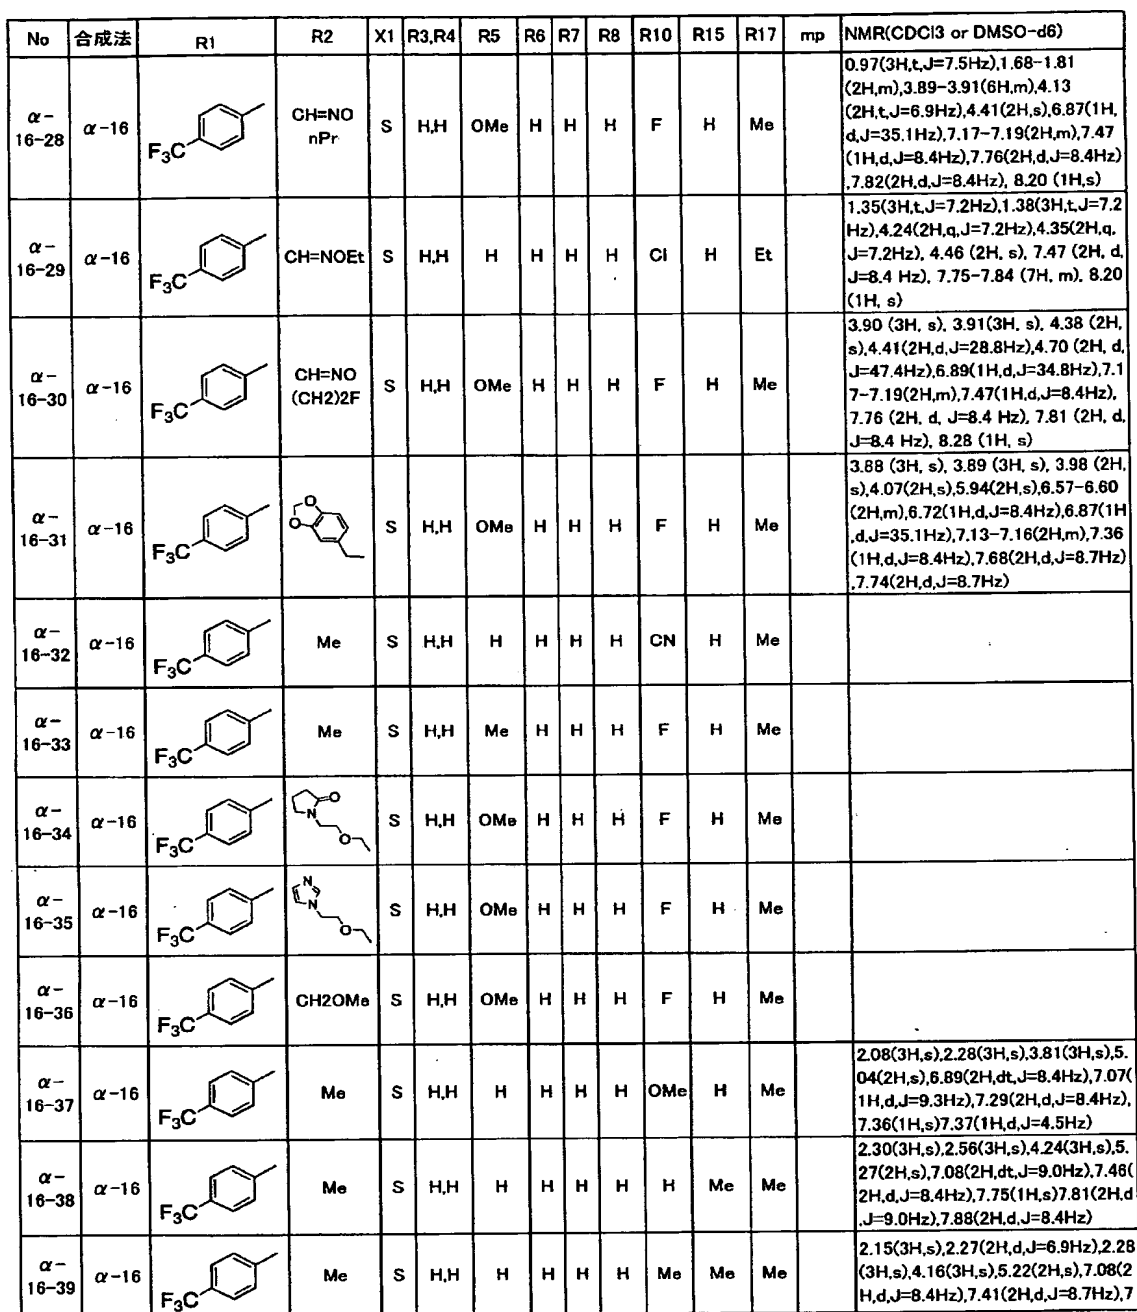 No 合成法 R1 R2 X1 R3,R4 R5 R6 R7 R8 R10 R15 R17 mp NMR(CDCl3 or DMSO-d6)
α-
16-28
α-16
F3C
CH=NO
nPr
S H,H OMe H H H F H Me
0.97(3H,t,J=7.5Hz),1.68-1.81
(2H,m),3.89-3.91(6H,m),4.13
(2H,t,J=6.9Hz),4.41(2H,s),6.87(1H,
d,J=35.1Hz),7.17-7.19(2H,m),7.47
(1H,d,J=8.4Hz),7.76(2H,d,J=8.4Hz)
,7.82(2H,d,J=8.4Hz), 8.20 (1H,s)
α-
16-29
α-16
F3C
CH=NOEt
S H,H H H H H Cl H Et
1.35(3H,t,J=7.2Hz),1.38(3H,t,J=7.2
Hz),4.24(2H,q,J=7.2Hz),4.35(2H,q,
J=7.2Hz), 4.46 (2H, s), 7.47 (2H, d,
J=8.4 Hz), 7.75-7.84 (7H, m), 8.20
(1H, s)
α-
16-30
α-16
F3C
CH=NO
(CH2)2F
S H,H OMe H H H F H Me
3.90 (3H, s), 3.91(3H, s), 4.38 (2H,
s),4.41(2H,d,J=28.8Hz),4.70 (2H, d,
J=47.4Hz),6.89(1H,d,J=34.8Hz),7.1
7-7.19(2H,m),7.47(1H,d,J=8.4Hz),
7.76 (2H, d, J=8.4 Hz), 7.81 (2H, d,
J=8.4 Hz), 8.28 (1H, s)
α-
16-31
α-16
F3C
O
O
S H,H OMe H H H F H Me
3.88 (3H, s), 3.89 (3H, s), 3.98 (2H,
s),4.07(2H,s),5.94(2H,s),6.57-6.60
(2H,m),6.72(1H,d,J=8.4Hz),6.87(1H
,d,J=35.1Hz),7.13-7.16(2H,m),7.36
(1H,d,J=8.4Hz),7.68(2H,d,J=8.7Hz)
,7.74(2H,d,J=8.7Hz)
α-
16-32
α-16
F3C
Me S H,H H H H H CN H Me
α-
16-33
α-16
F3C
Me S H,H Me H H H F H Me
α-
16-34
α-16
F3C
O
N
O
S H,H OMe H H H F H Me
α-
16-35
α-16
F3C
N
N
O
S H,H OMe H H H F H Me
α-
16-36
α-16
F3C
CH2OMe S H,H OMe H H H F H Me
α-
16-37
α-16
F3C
Me S H,H H H H H OMe H Me
2.08(3H,s),2.28(3H,s),3.81(3H,s),5.
04(2H,s),6.89(2H,dt,J=8.4Hz),7.07(
1H,d,J=9.3Hz),7.29(2H,d,J=8.4Hz),
7.36(1H,s)7.37(1H,d,J=4.5Hz)
α-
16-38
α-16
F3C
Me S H,H H H H H H Me Me
2.30(3H,s),2.56(3H,s),4.24(3H,s),5.
27(2H,s),7.08(2H,dt,J=9.0Hz),7.46(
2H,d,J=8.4Hz),7.75(1H,s)7.81(2H,d
,J=9.0Hz),7.88(2H,d,J=8.4Hz)
α-
16-39
α-16
F3C
Me S H,H H H H H Me Me Me
2.15(3H,s),2.27(2H,d,J=6.9Hz),2.28
(3H,s),4.16(3H,s),5.22(2H,s),7.08(2
H,d,J=8.4Hz),7.41(2H,d,J=8.7Hz),7